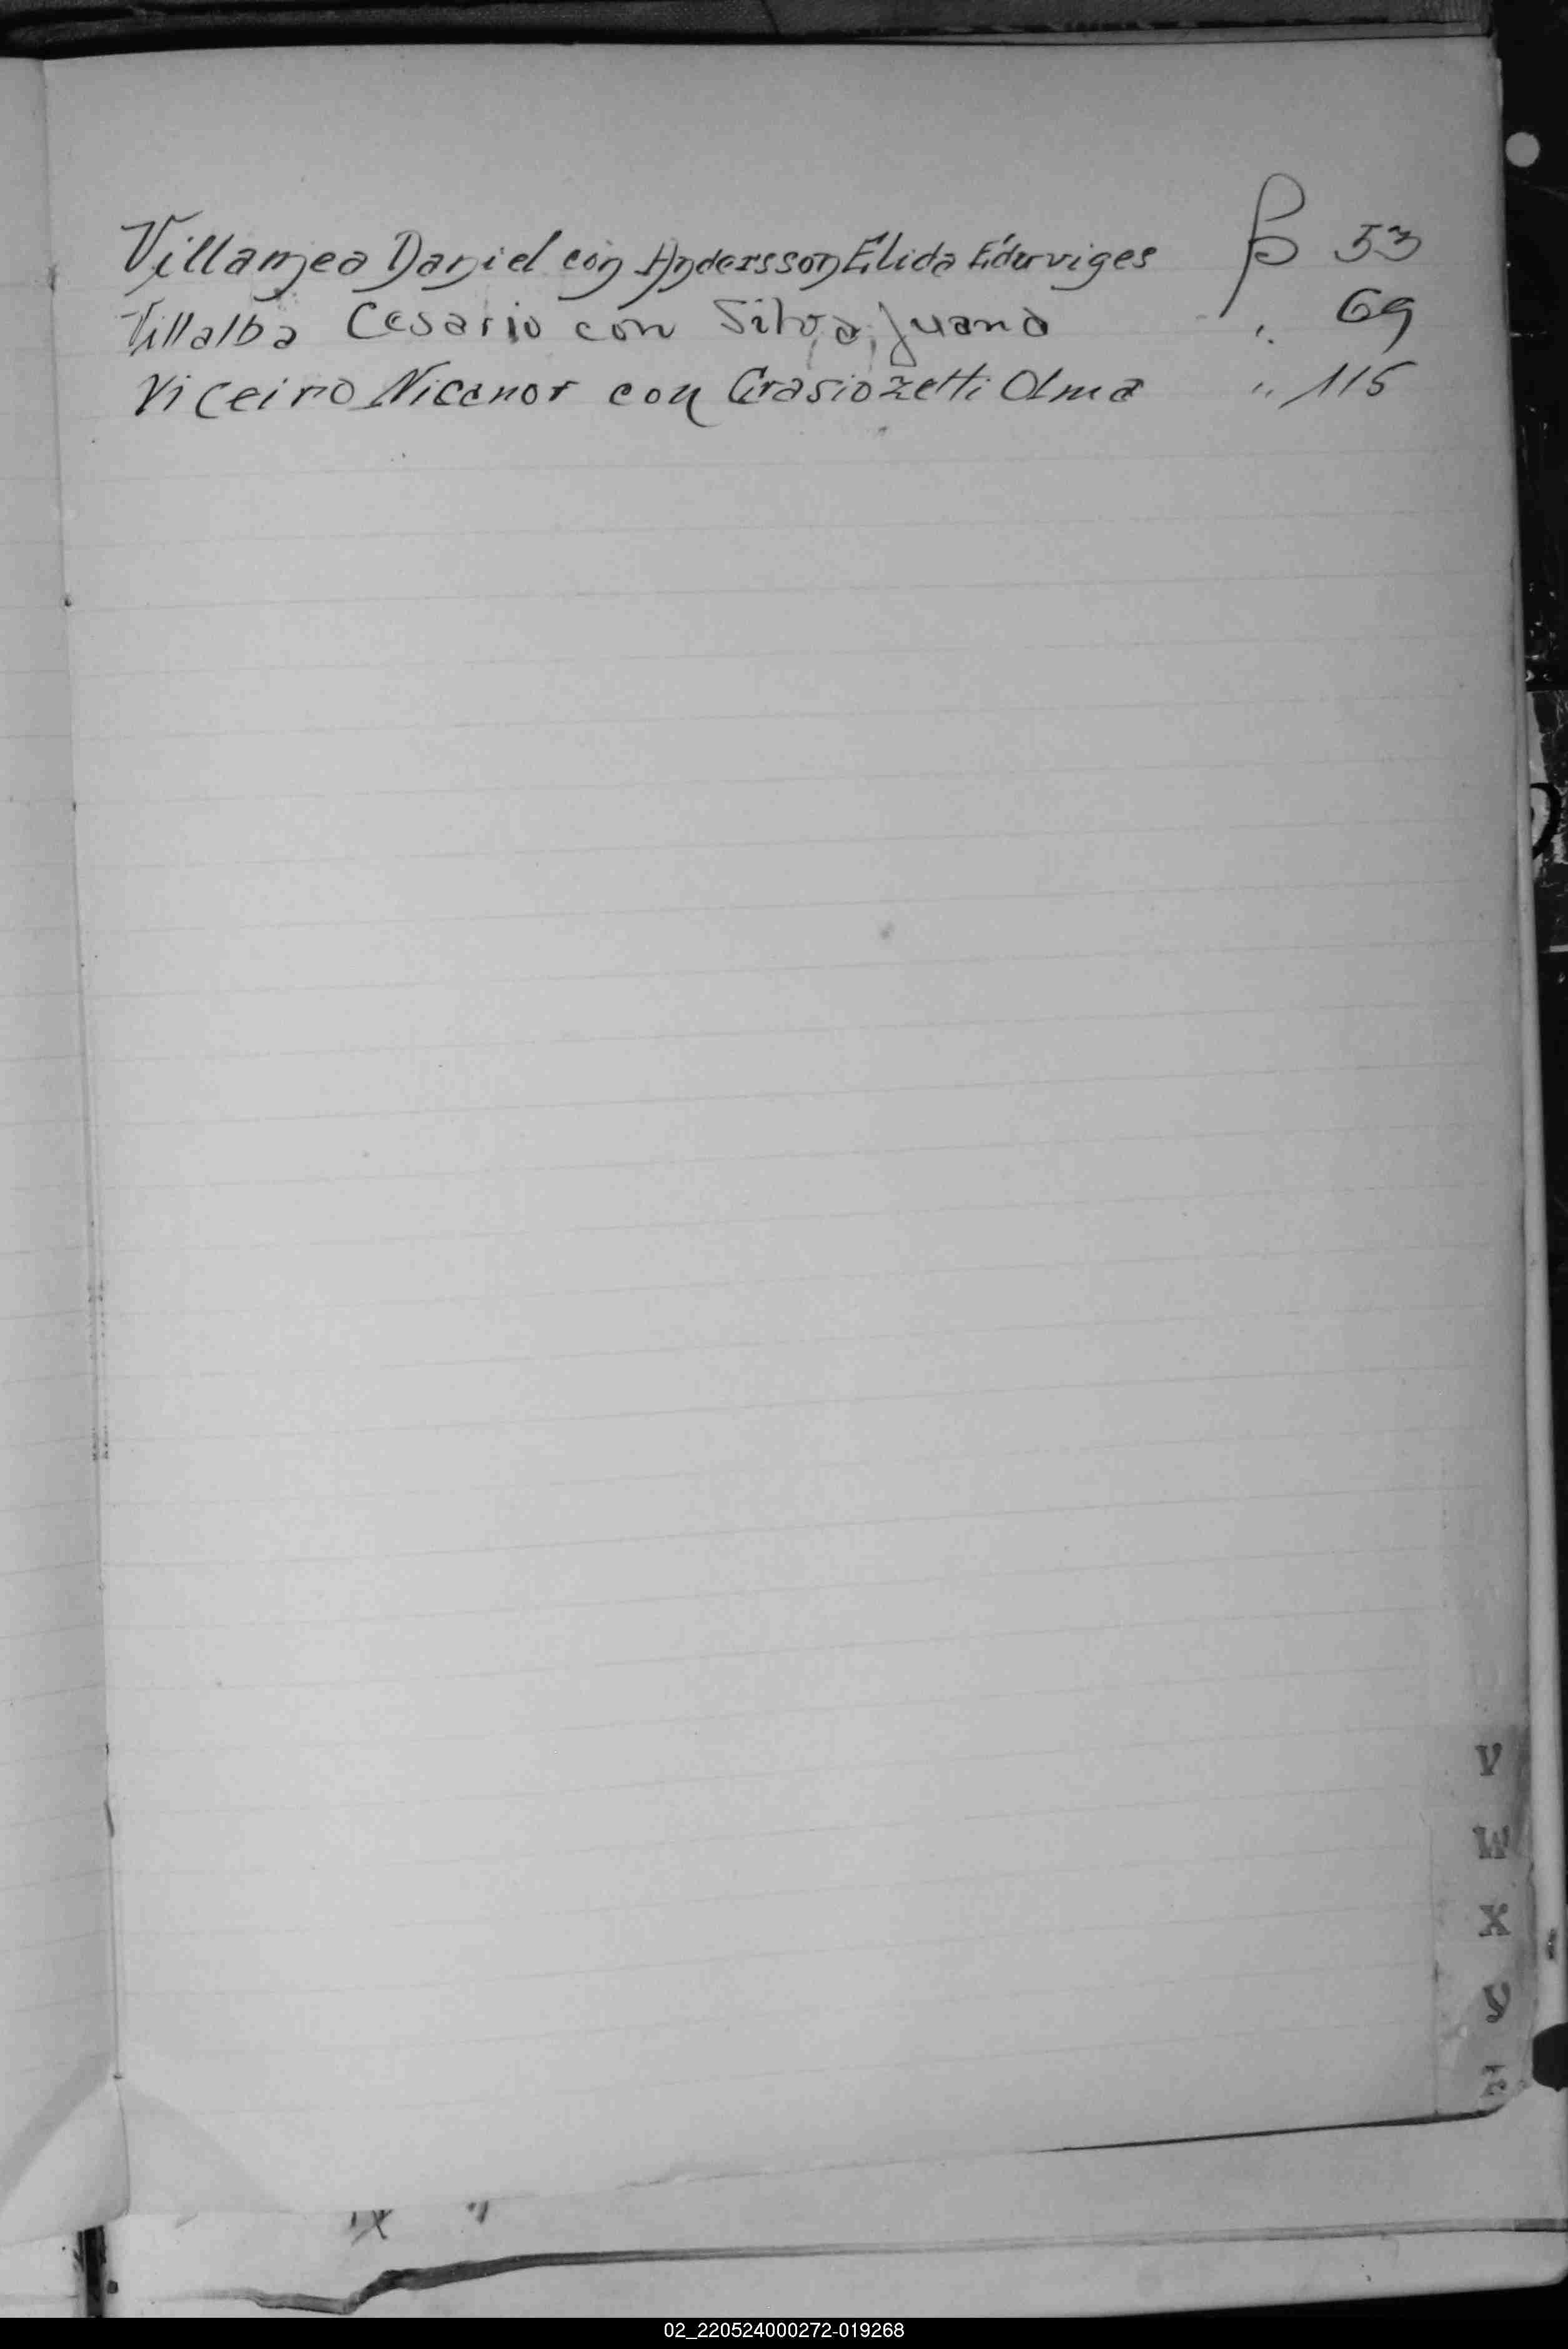 Villamea Daniel con Andersson Élida Éduviges ß 53
Villalba Cesario con Silva Juana " 69
Viceiro Nicanor con Grasiozetti Olma " 115
V
W
X
Y
Z
02_220524000272-019268